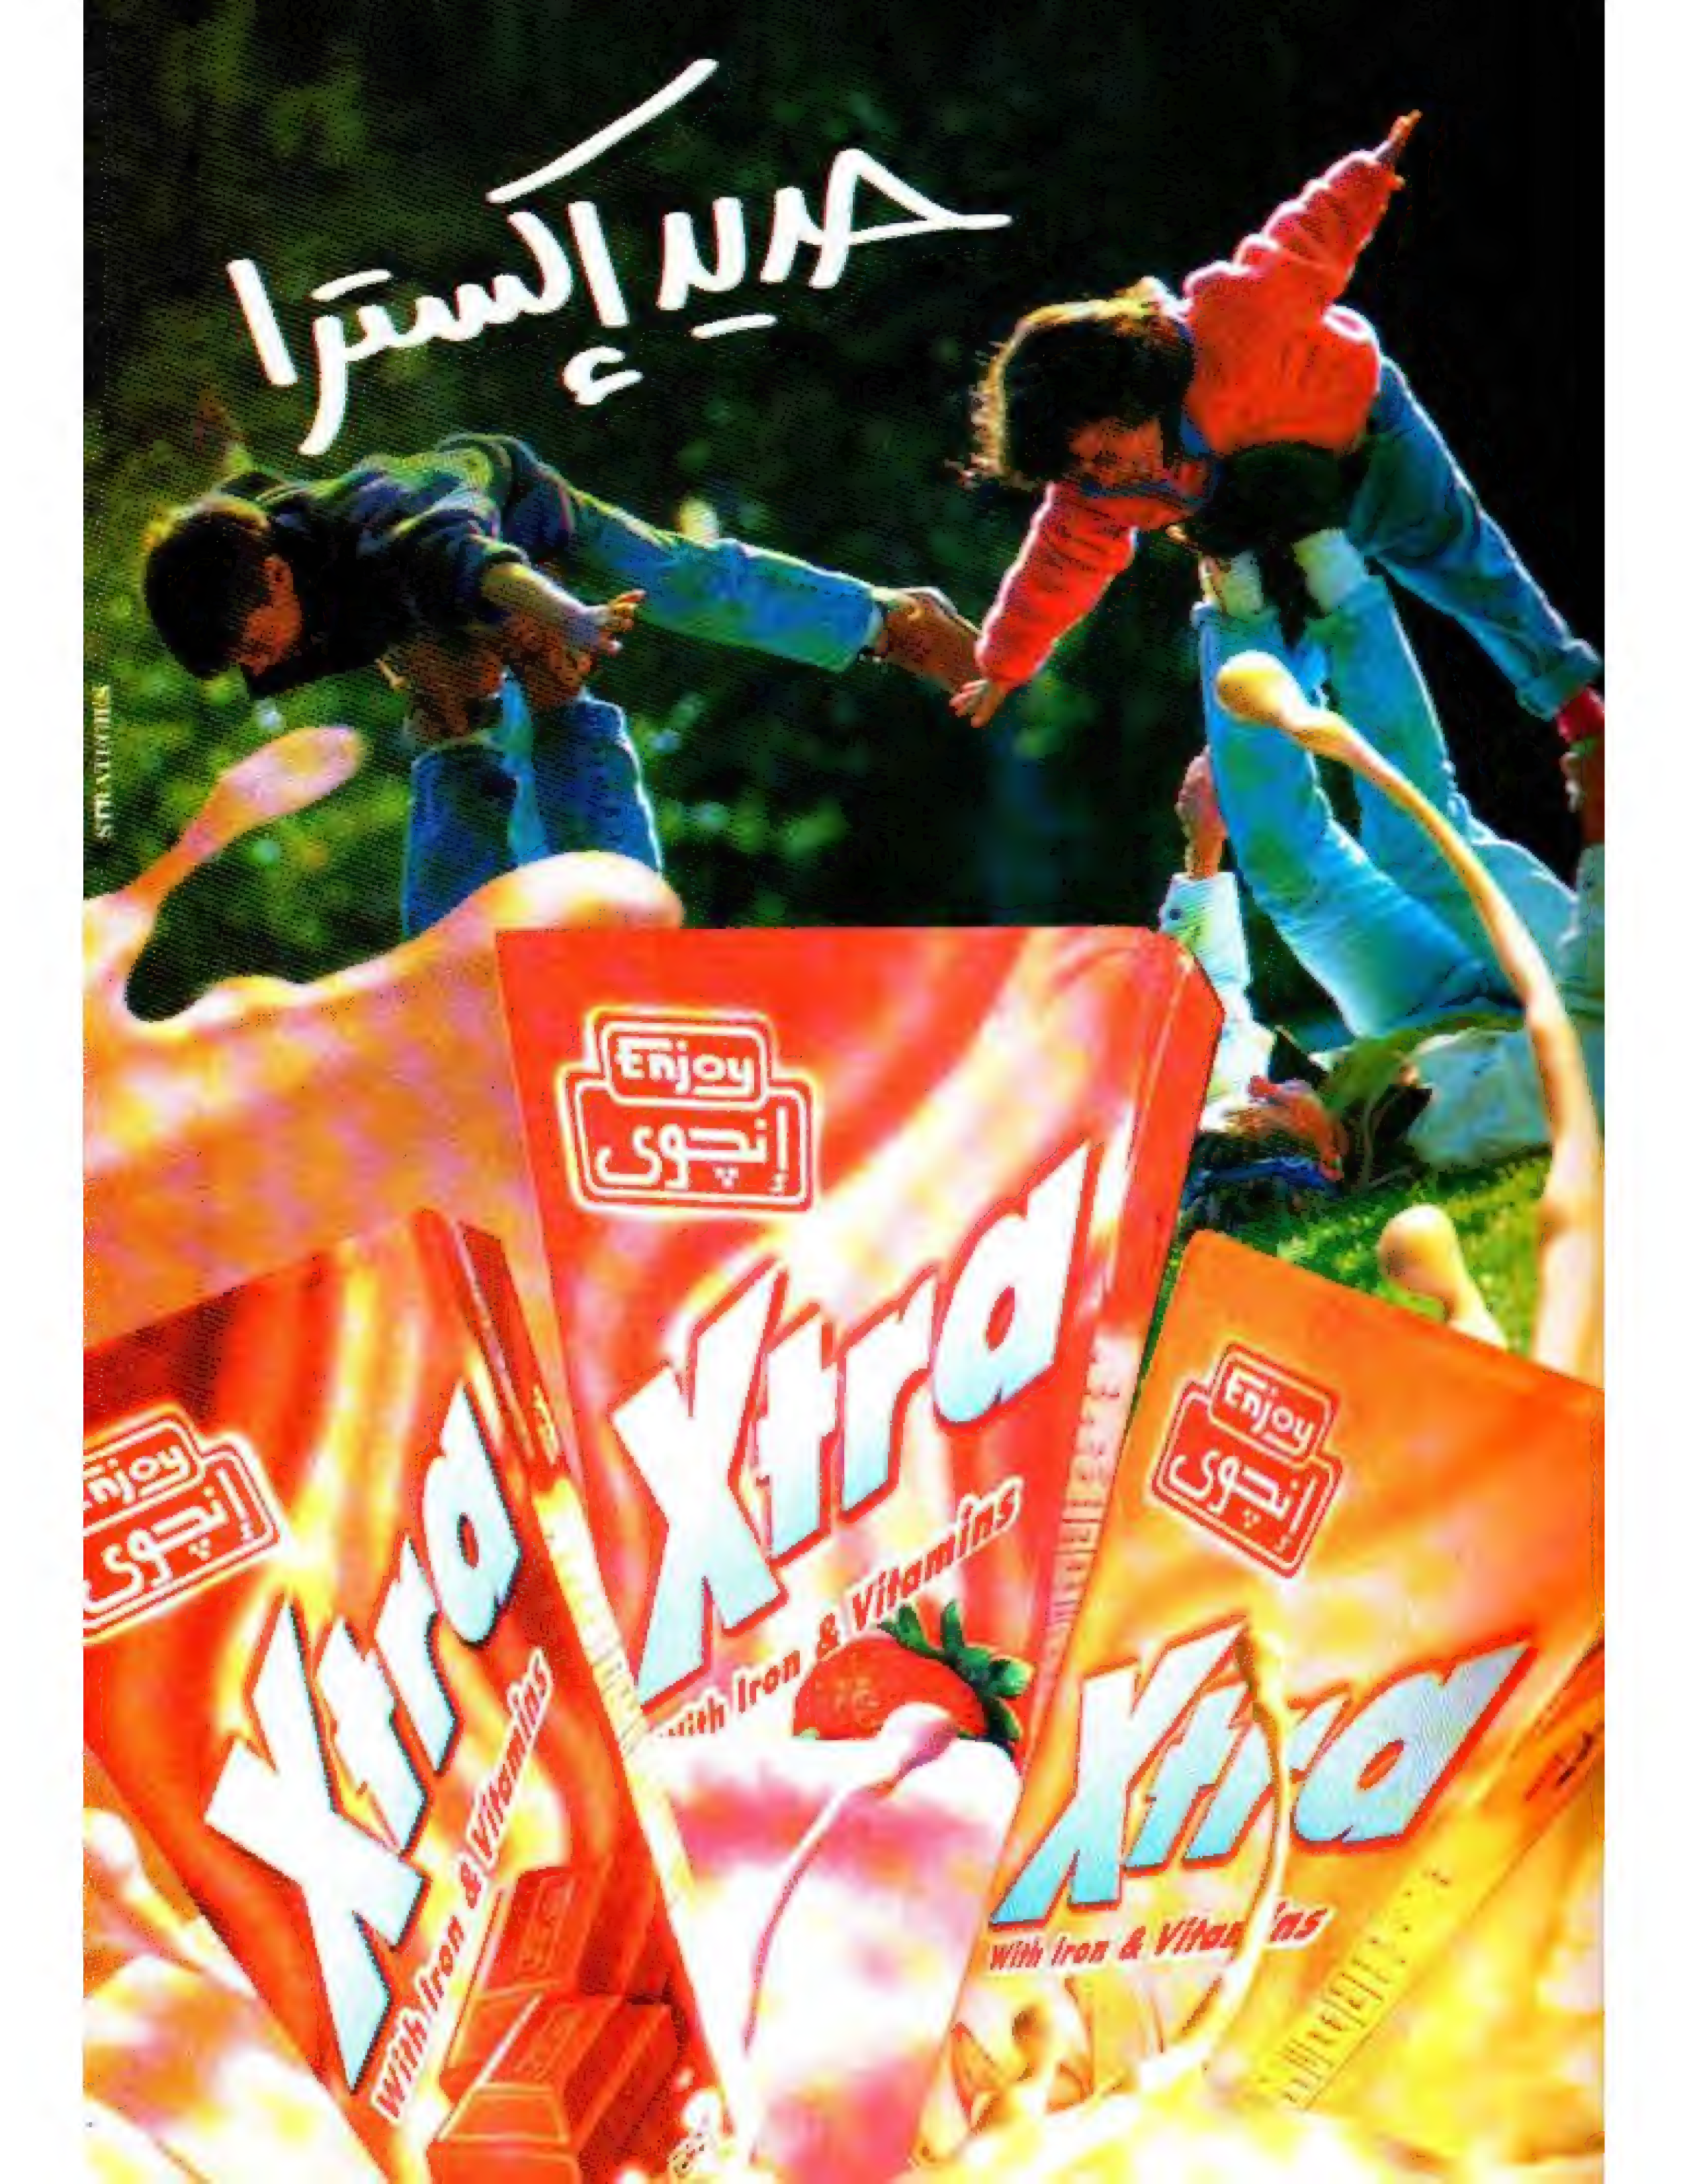 حديد إكسترا
STRATEGIES
Enjoy
إنچوى
Xtra
With Iron & Vitamins
Enjoy
إنچوى
Xtra
With Iron & Vitamins
Enjoy
إنچوى
Xtra
With Iron & Vitamins